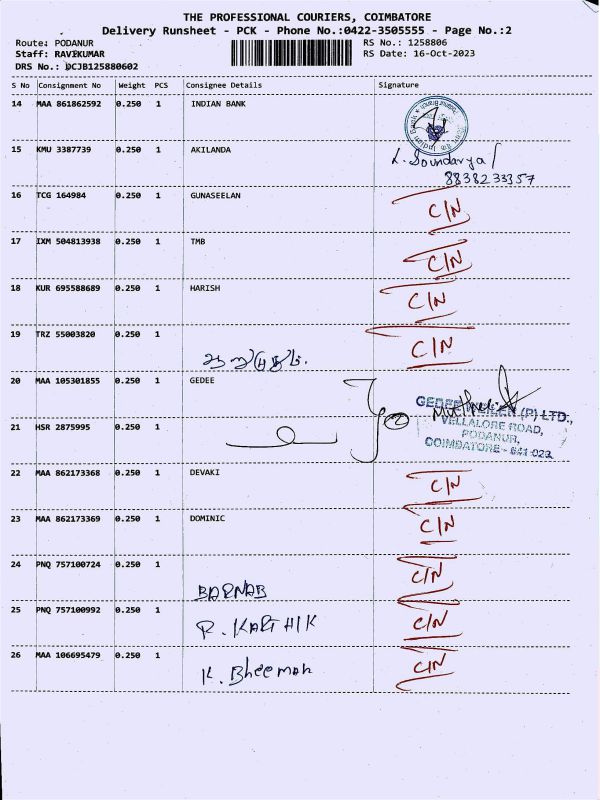 THE PROFESSIONAL COURIERS, COIMBATORE
Delivery Runsheet - PCK - Phone No.:0422-3505555 - Page No.:2
Route: PODANUR RS No.: 1258806
Staff: RAVIKUMAR RS Date: 16-Oct-2023
DRS No.: DCJB125880602
S No Consignment No Weight PCS Consignee Details Signature
14 MAA 861862592 0.250 1 INDIAN BANK
15 KMU 3387739 0.250 1 AKILANDA L. Soundarya
8838233357
16 TCG 164984 0.250 1 GUNASEELAN C/N
17 IXM 504813938 0.250 1 TMB C/N
18 KUR 695588689 0.250 1 HARISH C/N
19 TRZ 55003820 0.250 1 C/N
20 MAA 105301855 0.250 1 GEDEE
21 HSR 2875995 0.250 1
VELLALORE ROAD,
PODANUR,
COIMBATORE - 641 023.
22 MAA 862173368 0.250 1 DEVAKI C/N
23 MAA 862173369 0.250 1 DOMINIC C/N
24 PNQ 757100724 0.250 1 BARNAB C/N
25 PNQ 757100992 0.250 1 R. KARTHIK C/N
26 MAA 106695479 0.250 1 K. Bheemah C/N